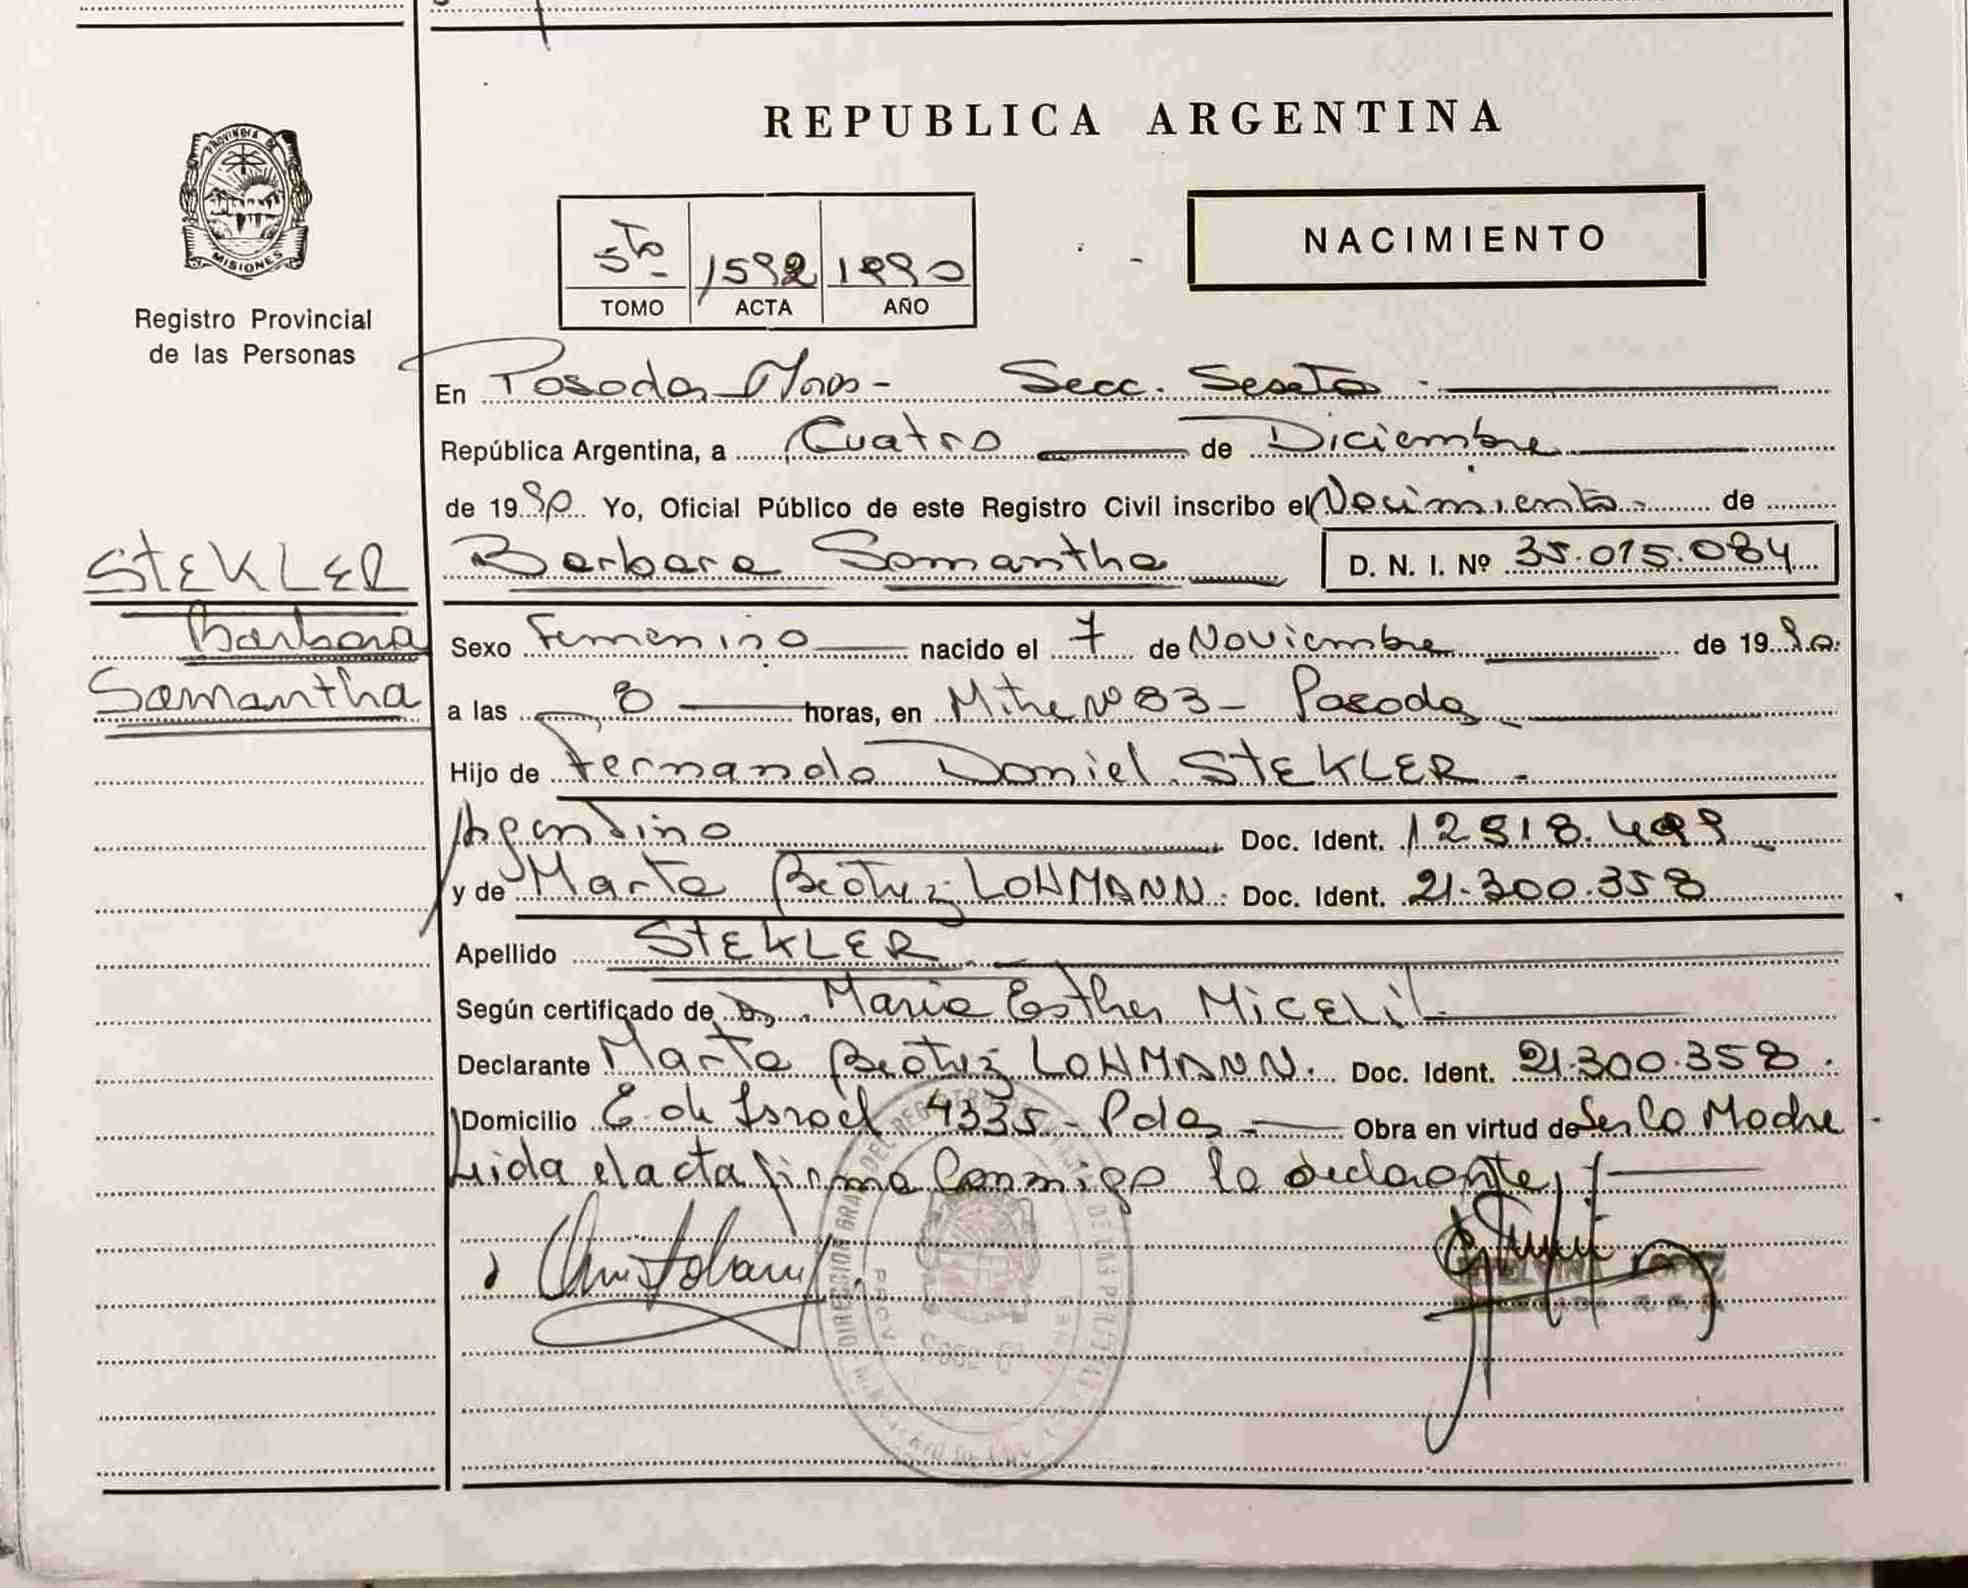 PROVINCIA DE
MISIONES
Registro Provincial
de las Personas
STEKLER
Barbara
Samantha
REPUBLICA ARGENTINA
5to 1592 1990
TOMO ACTA AÑO
NACIMIENTO
En Posadas Mnes - Secc. Sexta
República Argentina, a Cuatro de Diciembre
de 1990 Yo, Oficial Público de este Registro Civil inscribo el Nacimiento de
Barbara Samantha D. N. I. Nº 35.015.084
Sexo Femenino nacido el 7 de Noviembre de 1990.
a las 8 horas, en Mitre Nº 83 - Posadas
Hijo de Fernando Daniel STEKLER -
Argentino Doc. Ident. 12.918.499
y de Marta Beatriz LOHMANN. Doc. Ident. 21.300.358
Apellido STEKLER
Según certificado de Maria Esther MICELI
Declarante Marta Beatriz LOHMANN. Doc. Ident. 21.300.358.
Domicilio E. de Israel 4335 - Pdas Obra en virtud de Ser la Madre
Leida el acta firma conmigo la declarante,